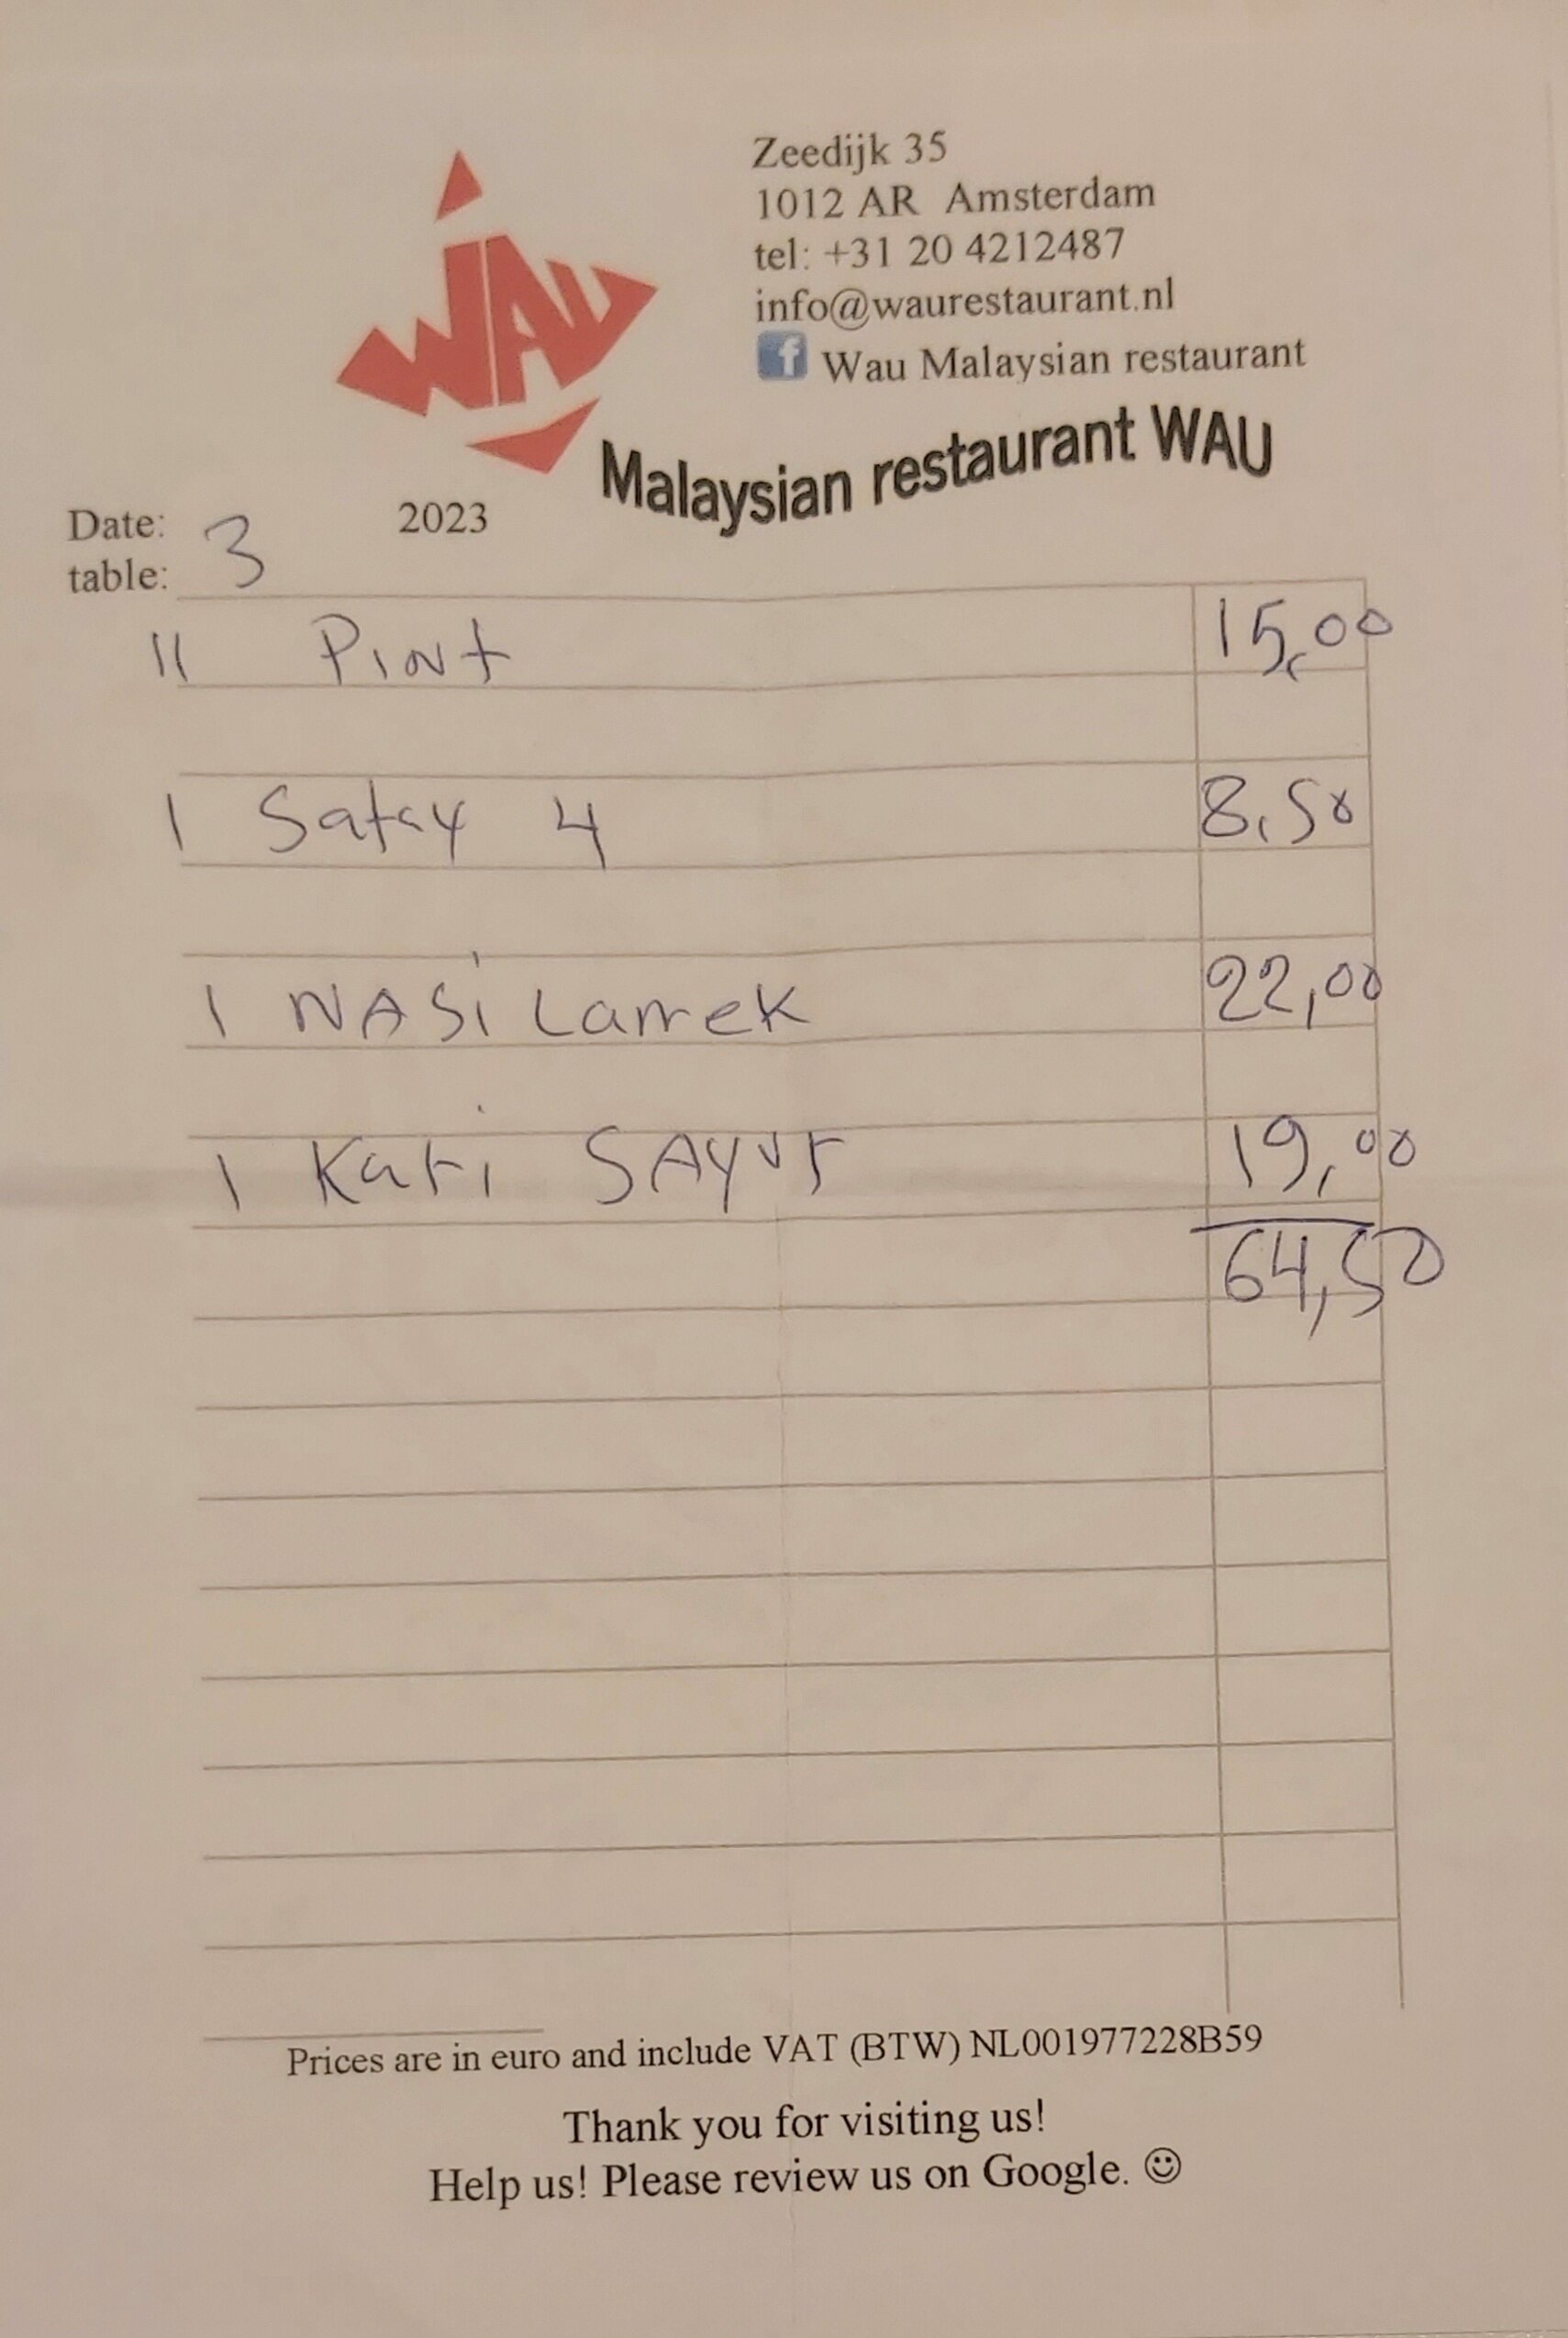 WAU
Zeedijk 35
1012 AR Amsterdam
tel: +31 20 4212487
info@waurestaurant.nl
f Wau Malaysian restaurant
Malaysian restaurant WAU
Date: 2023
table: 3
11 Pint 15,00
1 Satay 4 8,50
1 NASi Lamek 22,00
1 Kari SAyur 19,00
64,50
Prices are in euro and include VAT (BTW) NL001977228B59
Thank you for visiting us!
Help us! Please review us on Google. ☺